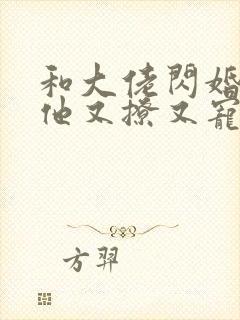 和大佬閃婚
他又撩又寵
方羿